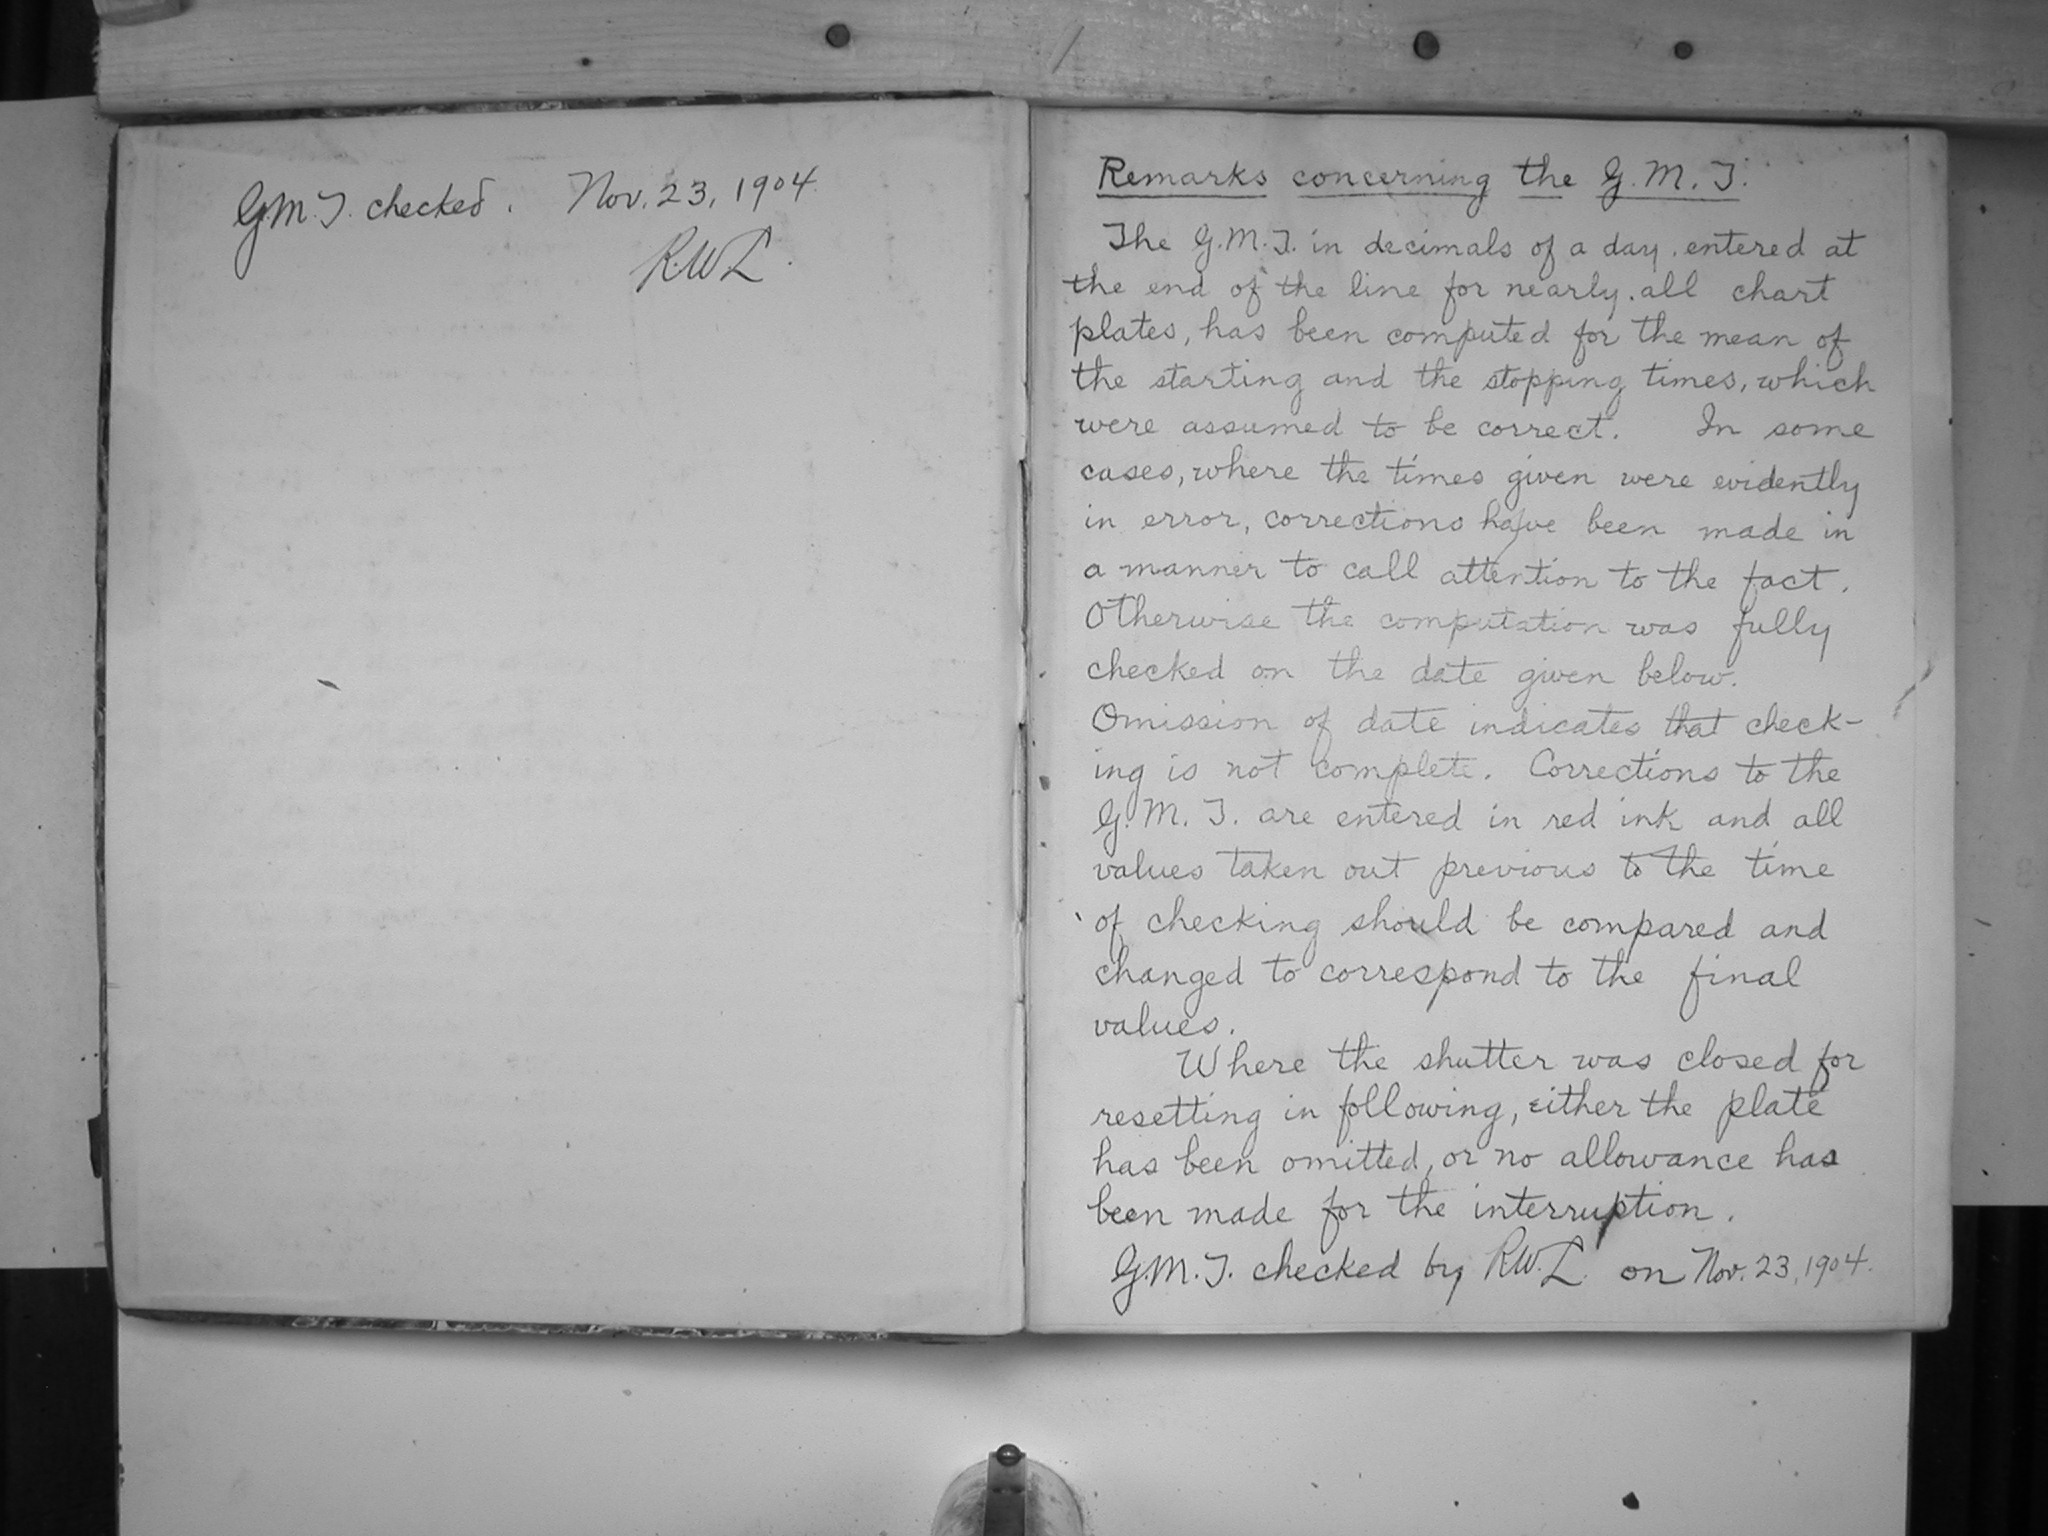 G.M.T. checked. Nov. 23, 1904.
R.W.L.
Remarks concerning the G.M.T.
The G.M.T. in decimals of a day, entered at
the end of the line for nearly all chart
plates, has been computed for the mean of
the starting and the stopping times, which
were assumed to be correct. In some
cases, where the times given were evidently
in error, corrections have been made in
a manner to call attention to the fact.
Otherwise the computation was fully
checked on the date given below.
Omission of date indicates that check-
ing is not complete. Corrections to the
G.M.T. are entered in red ink and all
values taken out previous to the time
of checking should be compared and
changed to correspond to the final
values.
Where the shutter was closed for
resetting in following, either the plate
has been omitted, or no allowance has
been made for the interruption.
G.M.T. checked by R.W.L. on Nov. 23, 1904.